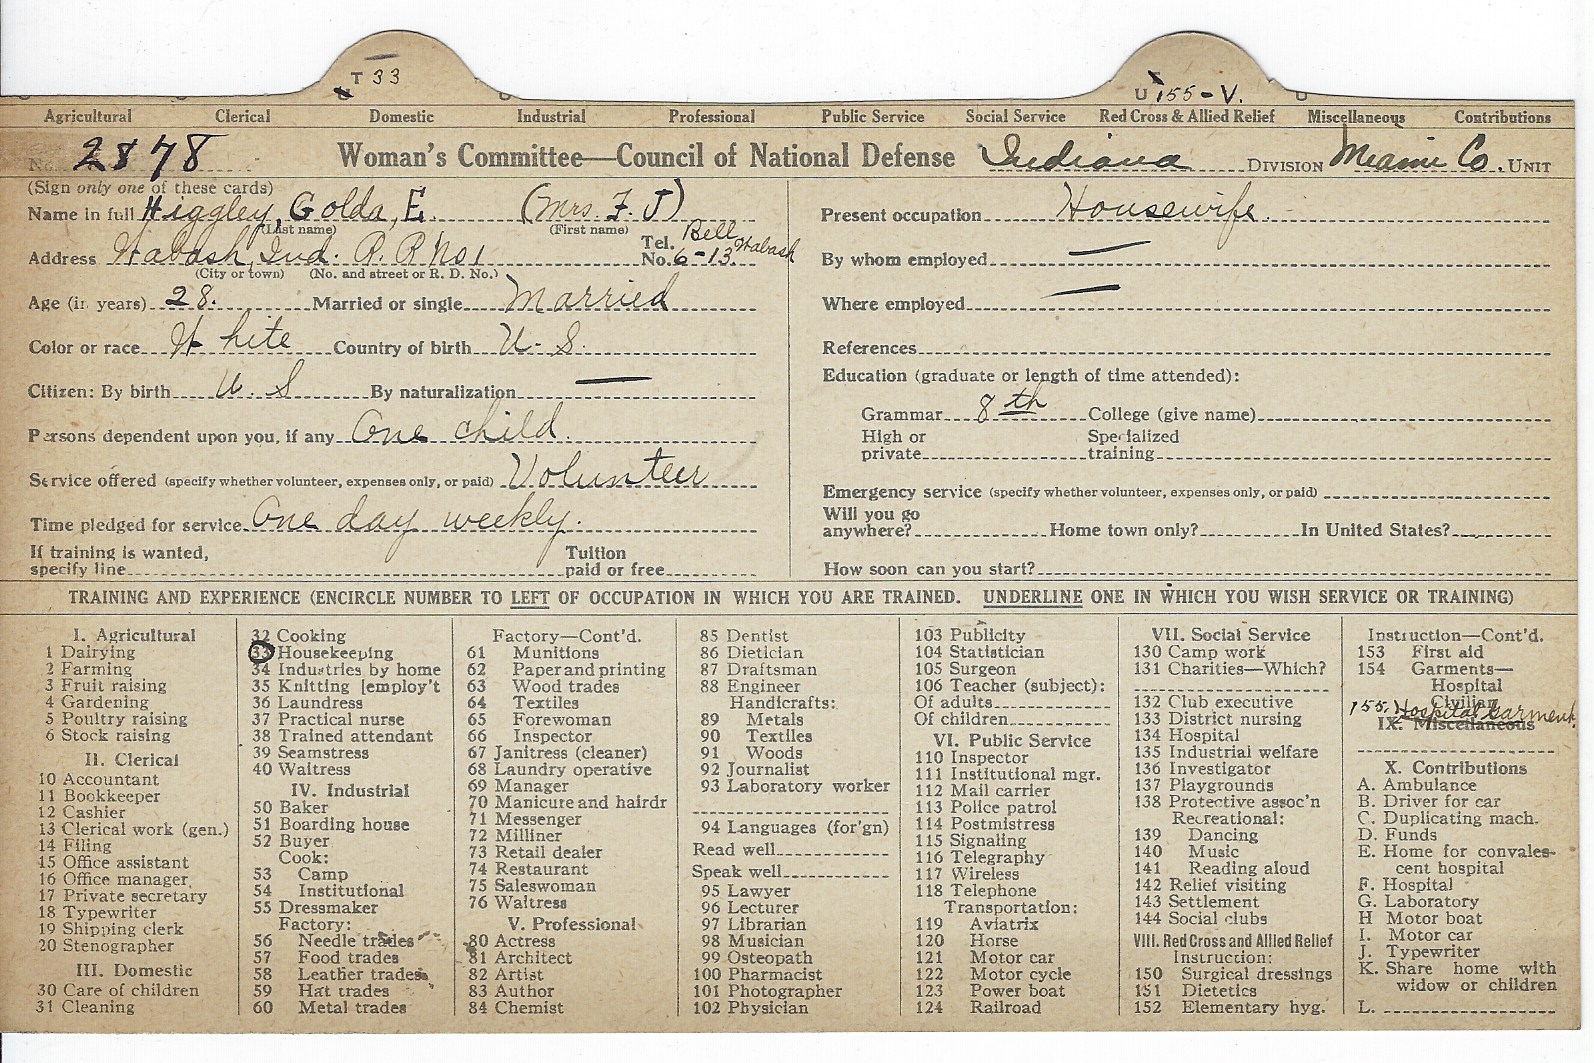 T 33
U 155-V.
Agricultural Clerical Domestic Industrial Professional Public Service Social Service Red Cross & Allied Relief Miscellaneous Contributions
No. 2878 Woman's Committee—Council of National Defense Indiana DIVISION Miami Co. UNIT
(Sign only one of these cards)
Name in full Higgley, Golda, E. (Mrs. F. J)
(Last name) (First name)
Address Wabash, Ind. R. R No 1 Tel. No. Bell 6-13. Wabash
(City or town) (No. and street or R. D. No.)
Age (in years) 28. Married or single Married
Color or race White Country of birth U. S.
Citizen: By birth U. S By naturalization —
Persons dependent upon you, if any One child.
Service offered (specify whether volunteer, expenses only, or paid) Volunteer
Time pledged for service One day weekly.
If training is wanted, Tuition
specify line paid or free
Present occupation Housewife.
By whom employed —
Where employed —
References
Education (graduate or length of time attended):
Grammar 8th College (give name)
High or Specialized
private training
Emergency service (specify whether volunteer, expenses only, or paid)
Will you go
anywhere? Home town only? In United States?
How soon can you start?
TRAINING AND EXPERIENCE (ENCIRCLE NUMBER TO LEFT OF OCCUPATION IN WHICH YOU ARE TRAINED. UNDERLINE ONE IN WHICH YOU WISH SERVICE OR TRAINING)
I. Agricultural
1 Dairying
2 Farming
3 Fruit raising
4 Gardening
5 Poultry raising
6 Stock raising
II. Clerical
10 Accountant
11 Bookkeeper
12 Cashier
13 Clerical work (gen.)
14 Filing
15 Office assistant
16 Office manager
17 Private secretary
18 Typewriter
19 Shipping clerk
20 Stenographer
III. Domestic
30 Care of children
31 Cleaning
32 Cooking
33 Housekeeping
34 Industries by home
35 Knitting [employ't
36 Laundress
37 Practical nurse
38 Trained attendant
39 Seamstress
40 Waitress
IV. Industrial
50 Baker
51 Boarding house
52 Buyer
Cook:
53 Camp
54 Institutional
55 Dressmaker
Factory:
56 Needle trades
57 Food trades
58 Leather trades
59 Hat trades
60 Metal trades
Factory—Cont'd.
61 Munitions
62 Paper and printing
63 Wood trades
64 Textiles
65 Forewoman
66 Inspector
67 Janitress (cleaner)
68 Laundry operative
69 Manager
70 Manicure and hairdr
71 Messenger
72 Milliner
73 Retail dealer
74 Restaurant
75 Saleswoman
76 Waitress
V. Professional
80 Actress
81 Architect
82 Artist
83 Author
84 Chemist
85 Dentist
86 Dietician
87 Draftsman
88 Engineer
Handicrafts:
89 Metals
90 Textiles
91 Woods
92 Journalist
93 Laboratory worker
94 Languages (for'gn)
Read well
Speak well
95 Lawyer
96 Lecturer
97 Librarian
98 Musician
99 Osteopath
100 Pharmacist
101 Photographer
102 Physician
103 Publicity
104 Statistician
105 Surgeon
106 Teacher (subject):
Of adults
Of children
VI. Public Service
110 Inspector
111 Institutional mgr.
112 Mail carrier
113 Police patrol
114 Postmistress
115 Signaling
116 Telegraphy
117 Wireless
118 Telephone
Transportation:
119 Aviatrix
120 Horse
121 Motor car
122 Motor cycle
123 Power boat
124 Railroad
VII. Social Service
130 Camp work
131 Charities—Which?
132 Club executive
133 District nursing
134 Hospital
135 Industrial welfare
136 Investigator
137 Playgrounds
138 Protective assoc'n
Recreational:
139 Dancing
140 Music
141 Reading aloud
142 Relief visiting
143 Settlement
144 Social clubs
VIII. Red Cross and Allied Relief
Instruction:
150 Surgical dressings
151 Dietetics
152 Elementary hyg.
Instruction—Cont'd.
153 First aid
154 Garments—
Hospital
Civilian
155. Hospital Garment.
IX. Miscellaneous
X. Contributions
A. Ambulance
B. Driver for car
C. Duplicating mach.
D. Funds
E. Home for convales-
cent hospital
F. Hospital
G. Laboratory
H Motor boat
I. Motor car
J. Typewriter
K. Share home with
widow or children
L.